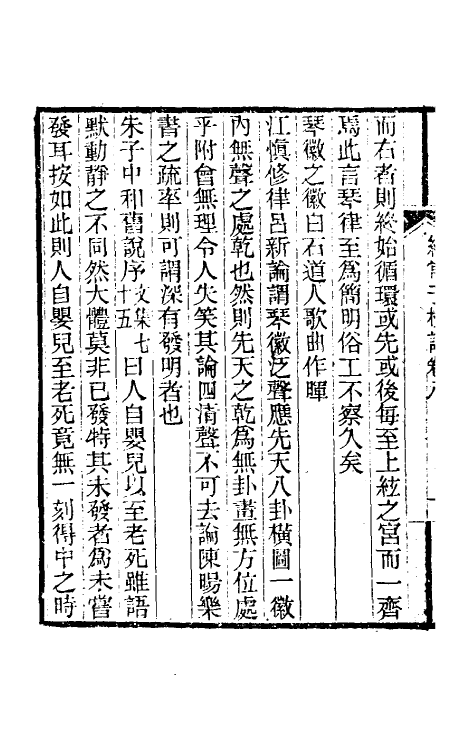 而右者則終始循環或先或後每至上絃之宮而一齊
焉此言琴律至爲簡明俗工不察久矣
琴徽之徽白石道人歌曲作暉
江愼修律呂新論謂琴徽泛聲應先天八卦橫圖一徽
內無聲之處乾也然則先天之乾爲無卦畫無方位處
乎附會無理令人失笑其論四清聲不可去論陳暘樂
書之疏率則可謂深有發明者也
朱子中和舊說序文集七十五曰人自嬰兒以至老死雖語
默動靜之不同然大體莫非已發特其未發者爲未嘗
發耳按如此則人自嬰兒至老死竟無一刻得中之時